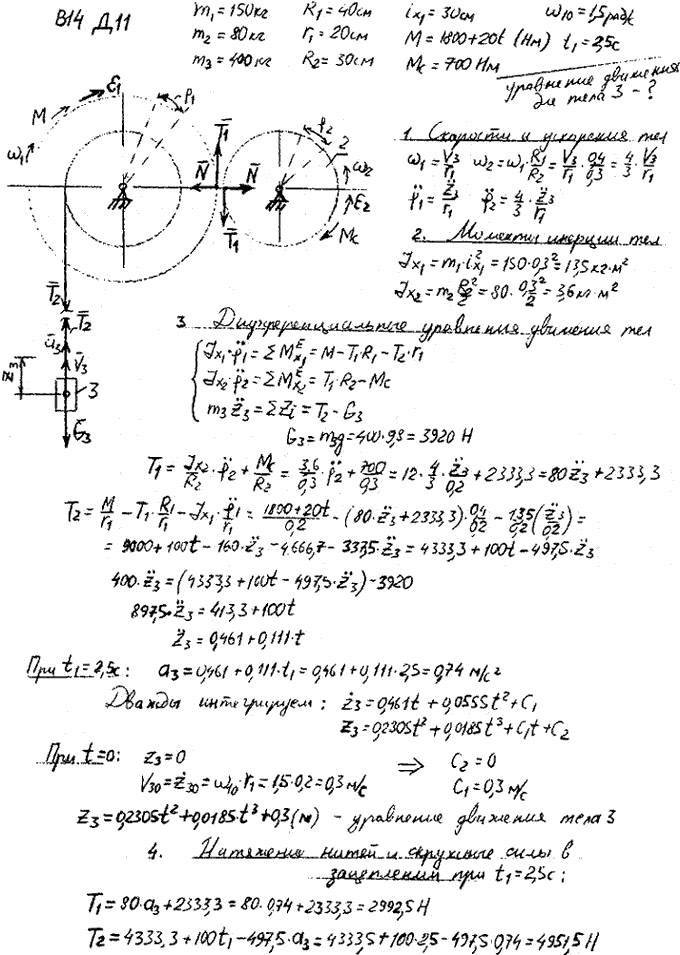 В14 Д.11
m₁ = 150 кг R₁ = 40 см iₓ₁ = 30 см ω₁₀ = 1,5 рад/с
m₂ = 80 кг r₁ = 20 см M = 1800 + 20t (Нм) t₁ = 2,5 с
m₃ = 400 кг R₂ = 30 см Mc = 700 Нм
уравнение движения
для тела 3 - ?
M ε₁ φ₁
ω₁ T̄₁ φ₂ 2
N̄ N̄ ω₂
ε₂
T̄₁ Mc
T̄₂
T̄₂
ā₃
V̄₃
Z₃ 3
Ḡ₃
1. Скорости и ускорения тел
ω₁ = V₃/r₁ ω₂ = ω₁·R₁/R₂ = V₃/r₁·0,4/0,3 = 4/3·V₃/r₁
φ̈₁ = z̈₃/r₁ φ̈₂ = 4/3·z̈₃/r₁
2. Моменты инерции тел
Jx₁ = m₁·i²x₁ = 150·0,3² = 13,5 кг·м²
Jx₂ = m₂R₂²/2 = 80·0,3²/2 = 3,6 кг·м²
3. Дифференциальные уравнения движения тел
Jx₁·φ̈₁ = ΣMᴱx₁ = M - T₁·R₁ - T₂·r₁
Jx₂·φ̈₂ = ΣMᴱx₂ = T₁·R₂ - Mc
m₃z̈₃ = ΣZi = T₂ - G₃
G₃ = m₃g = 400·9,8 = 3920 Н
T₁ = Jx₂/R₂·φ̈₂ + Mc/R₂ = 3,6/0,3·φ̈₂ + 700/0,3 = 12·4/3·z̈₃/0,2 + 2333,3 = 80z̈₃ + 2333,3
T₂ = M/r₁ - T₁·R₁/r₁ - Jx₁·φ̈₁/r₁ = (1800+20t)/0,2 - (80·z̈₃ + 2333,3)·0,4/0,2 - 13,5/0,2(z̈₃/0,2) =
= 9000 + 100t - 160·z̈₃ - 4666,7 - 337,5·z̈₃ = 4333,3 + 100t - 497,5·z̈₃
400·z̈₃ = (4333,3 + 100t - 497,5·z̈₃) - 3920
897,5·z̈₃ = 413,3 + 100t
z̈₃ = 0,461 + 0,111·t
При t₁ = 2,5с: a₃ = 0,461 + 0,111·t₁ = 0,461 + 0,111·2,5 = 0,74 м/с²
Дважды интегрируем: ż₃ = 0,461t + 0,0555t² + C₁
z₃ = 0,2305t² + 0,0185t³ + C₁t + C₂
При t=0: z₃ = 0 ⇒ C₂ = 0
V₃₀ = ż₃₀ = ω₁₀·r₁ = 1,5·0,2 = 0,3 м/с C₁ = 0,3 м/с
z₃ = 0,2305t² + 0,0185·t³ + 0,3 (м) - уравнение движения тела 3
4. Натяжение нитей и окружные силы в
зацеплении при t₁ = 2,5с:
T₁ = 80·a₃ + 2333,3 = 80·0,74 + 2333,3 = 2992,5 Н
T₂ = 4333,3 + 100t₁ - 497,5·a₃ = 4333,5 + 100·2,5 - 497,5·0,74 = 4951,5 Н